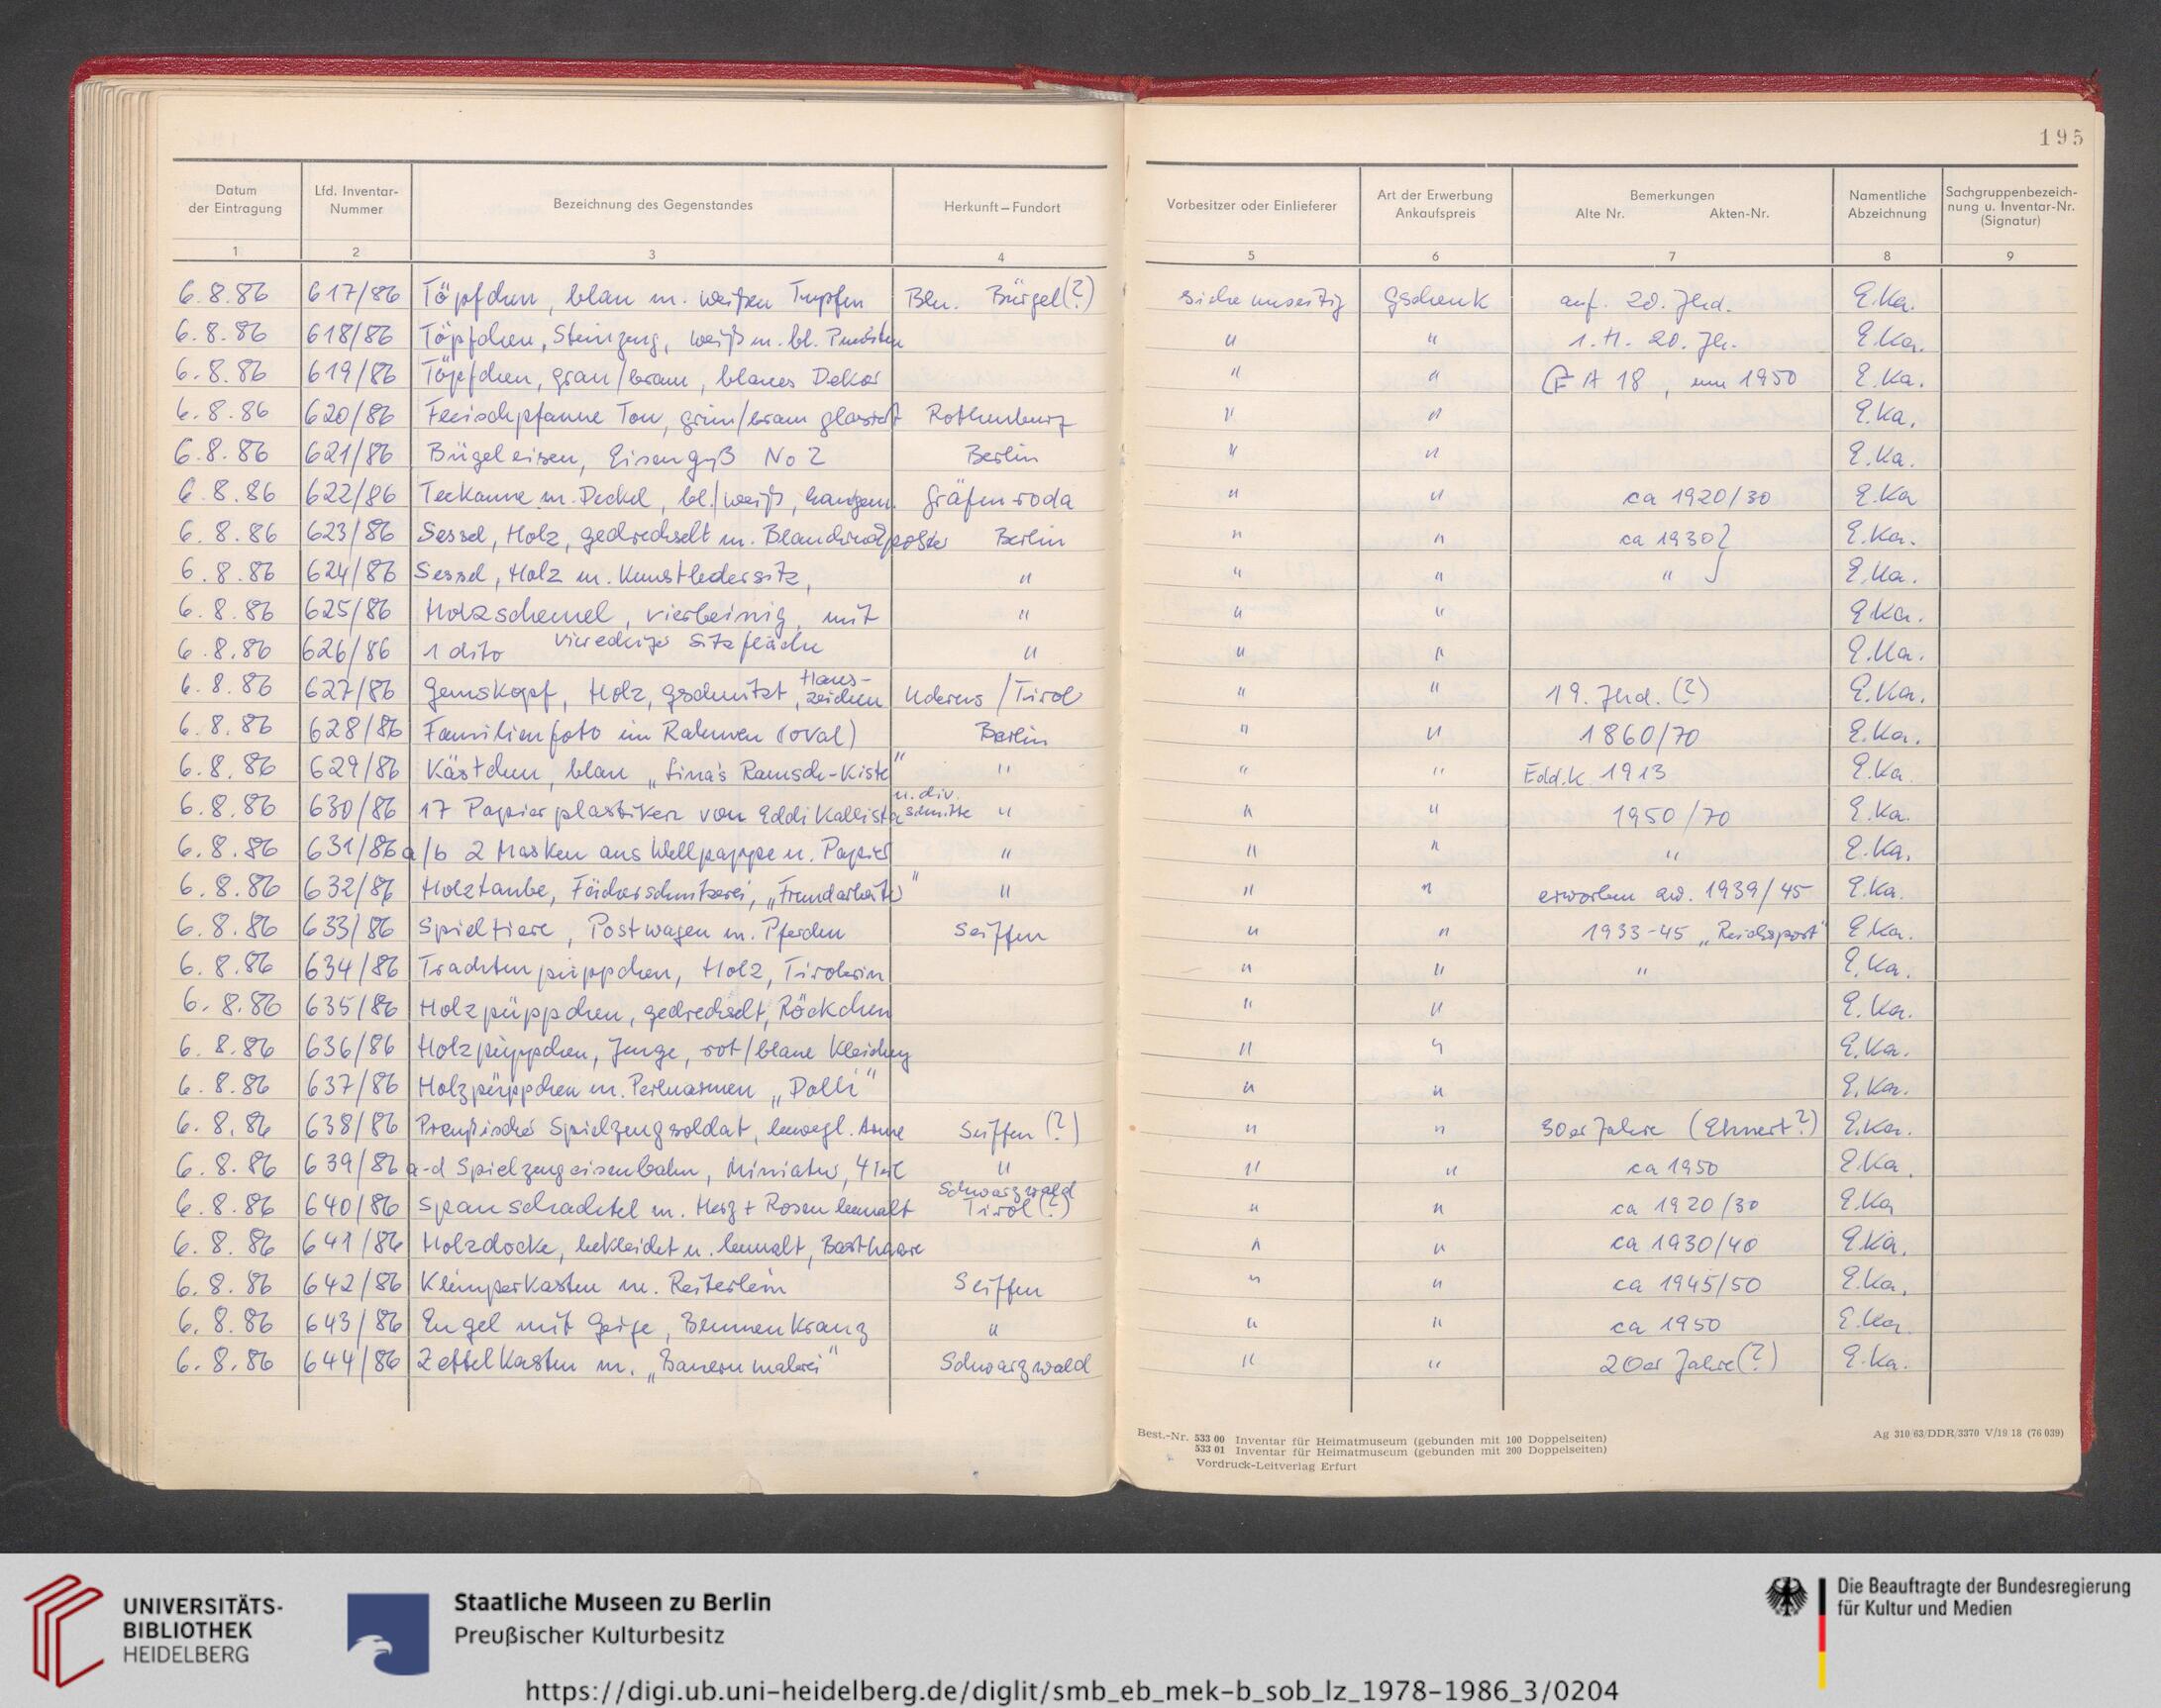 195
Datum der Eintragung | Lfd. Inventar-Nummer | Bezeichnung des Gegenstandes | Herkunft – Fundort | Vorbesitzer oder Einlieferer | Art der Erwerbung Ankaufspreis | Bemerkungen Alte Nr. Akten-Nr. | Namentliche Abzeichnung | Sachgruppenbezeichnung u. Inventar-Nr. (Signatur)
1 | 2 | 3 | 4 | 5 | 6 | 7 | 8 | 9
6.8.86 | 617/86 | Töpfchen, blau m. weißen Tupfen | Bln. Bürgel(?) | siehe umseitig | Gschenk | anf. 20. Jhd. | E.Ka.
6.8.86 | 618/86 | Töpfchen, Steinzeug, weiß m. bl. Punkten | " | " | 1. H. 20. Jh. | E.Ka.
6.8.86 | 619/86 | Töpfchen, grau/braun, blaues Dekor | " | " | A 18, um 1950 | E.Ka.
6.8.86 | 620/86 | Fleischpfanne Ton, grün/braun glasiert | Rothenburg | " | " | E.Ka.
6.8.86 | 621/86 | Bügeleisen, Eisenguß No 2 | Berlin | " | " | E.Ka.
6.8.86 | 622/86 | Teekanne m. Deckel, bl./weiß, handgem. | Gräfenroda | " | " | ca 1920/30 | E.Ka
6.8.86 | 623/86 | Sessel, Holz, gedrechselt m. Blaudruckpolster | Berlin | " | " | ca 1930 } | E.Ka.
6.8.86 | 624/86 | Sessel, Holz m. Kunstledersitz, | " | " | " | " | E.Ka.
6.8.86 | 625/86 | Holzschemel, vierbeinig, mit viereckiger Sitzfläche | " | " | " | E.Ka.
6.8.86 | 626/86 | 1 dito | " | " | " | E.Ka.
6.8.86 | 627/86 | Gemskopf, Holz, gschnitzt, Hauszeichen | Uderns / Tirol | " | " | 19. Jhd. (?) | E.Ka.
6.8.86 | 628/86 | Familienfoto im Rahmen (oval) | Berlin | " | " | 1860/70 | E.Ka.
6.8.86 | 629/86 | Kästchen, blau „Lina's Ramsch-Kiste" | " | " | " | Edd.K. 1913 | E.Ka.
6.8.86 | 630/86 | 17 Papierplastiken von Eddi Kallista u. div. schnitte | " | " | " | 1950/70 | E.Ka.
6.8.86 | 631/86 a/b | 2 Masken aus Wellpappe u. Papier | " | " | " | " | E.Ka.
6.8.86 | 632/86 | Holztaube, Fächerschnitzerei, „Fremdarbeiter" | " | " | " | erworben zw. 1939/45 | E.Ka.
6.8.86 | 633/86 | Spieltiere, Postwagen m. Pferden | Seiffen | " | " | 1933-45 „Reichspost" | E.Ka.
6.8.86 | 634/86 | Trachtenpüppchen, Holz, Tirolerin | " | " | " | E.Ka.
6.8.86 | 635/86 | Holzpüppchen, gedrechselt, Röckchen | " | " | E.Ka.
6.8.86 | 636/86 | Holzpüppchen, Junge, rot/blaue Kleidung | " | " | E.Ka.
6.8.86 | 637/86 | Holzpüppchen m. Perlenarmen „Dolli" | " | " | E.Ka.
6.8.86 | 638/86 | Preußischer Spielzeugsoldat, bewegl. Arme | Seiffen (?) | " | " | 30er Jahre (Ehnert?) | E.Ka.
6.8.86 | 639/86 a-d | Spielzeugeisenbahn, Miniatur, 4 Teile | " | " | " | ca 1950 | E.Ka.
6.8.86 | 640/86 | Spanschachtel m. Herz + Rosen bemalt | Schwarzwald Tirol (?) | " | " | ca 1920/30 | E.Ka
6.8.86 | 641/86 | Holzdocke, bekleidet u. bemalt, Basthaare | " | " | ca 1930/40 | E.Ka.
6.8.86 | 642/86 | Klimperkasten m. Reiterlein | Seiffen | " | " | ca 1945/50 | E.Ka.
6.8.86 | 643/86 | Engel mit Geige, Blumenkranz | " | " | " | ca 1950 | E.Ka.
6.8.86 | 644/86 | Zettelkasten m. „Bauernmalerei" | Schwarzwald | " | " | 20er Jahre(?) | E.Ka.
Best.-Nr. 533 00 Inventar für Heimatmuseum (gebunden mit 100 Doppelseiten)
533 01 Inventar für Heimatmuseum (gebunden mit 200 Doppelseiten)
Vordruck-Leitverlag Erfurt
Ag 310/63/DDR/3370 V/19 18 (76 039)
UNIVERSITÄTS-
BIBLIOTHEK
HEIDELBERG
Staatliche Museen zu Berlin
Preußischer Kulturbesitz
Die Beauftragte der Bundesregierung
für Kultur und Medien
https://digi.ub.uni-heidelberg.de/diglit/smb_eb_mek-b_sob_lz_1978-1986_3/0204